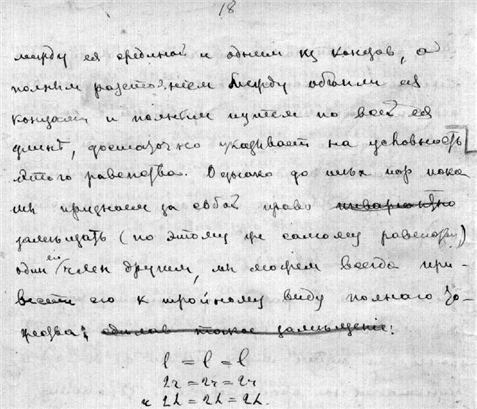 18
между ея срединой и одним из концов, а
полным разстоянием между обоими ея
концами и полным путем по всей ея
длинѣ, достаточно указывает на условность
этого равенства. Однако до тѣх пор пока
мы признаем за собой право
замещать (по этому же самому равенству)
один ея член другим, мы можем всегда при-
вести его к тройному виду полнаго то-
жества: сделав такое замещение:
l = l = l
2r = 2r = 2r
и 2h = 2h = 2h.